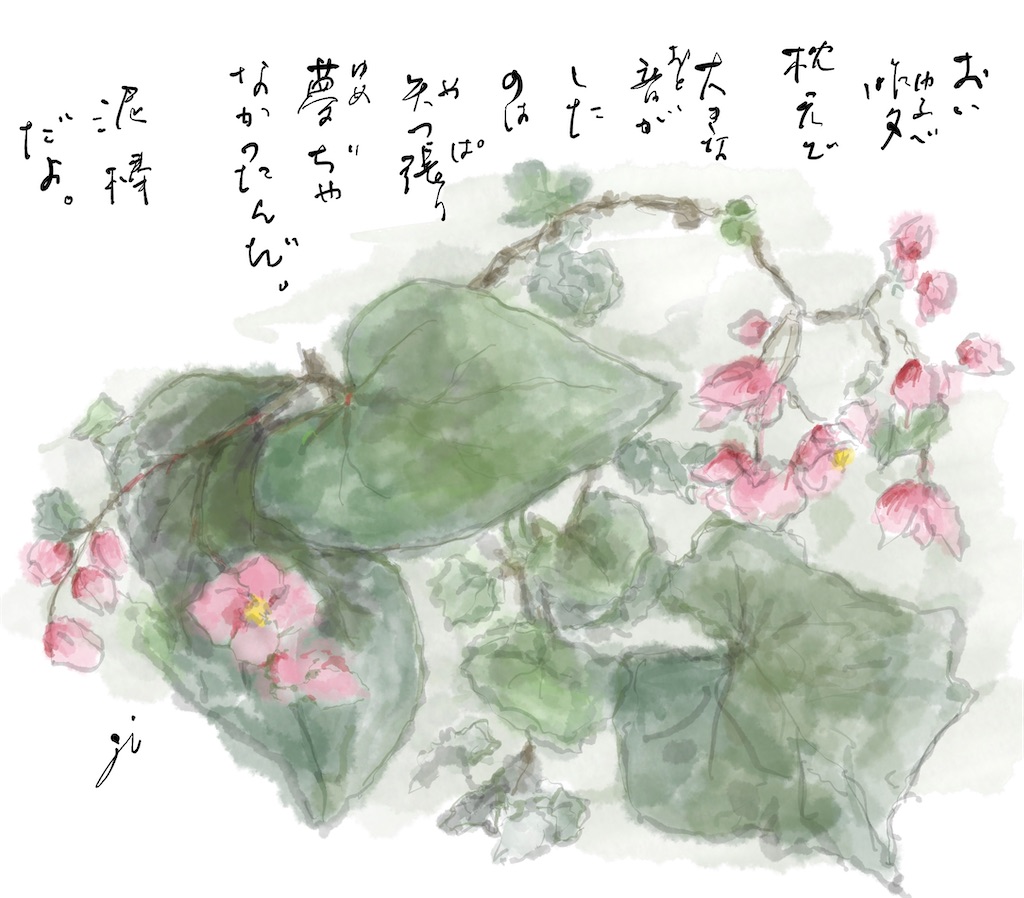 おい
昨夕
ゆふべ
枕元で
大きな
音が
おと
した
のは
矢っ張り
や ぱ
夢ぢや
ゆめ
なかったんだ。
泥棒
だよ。
ji